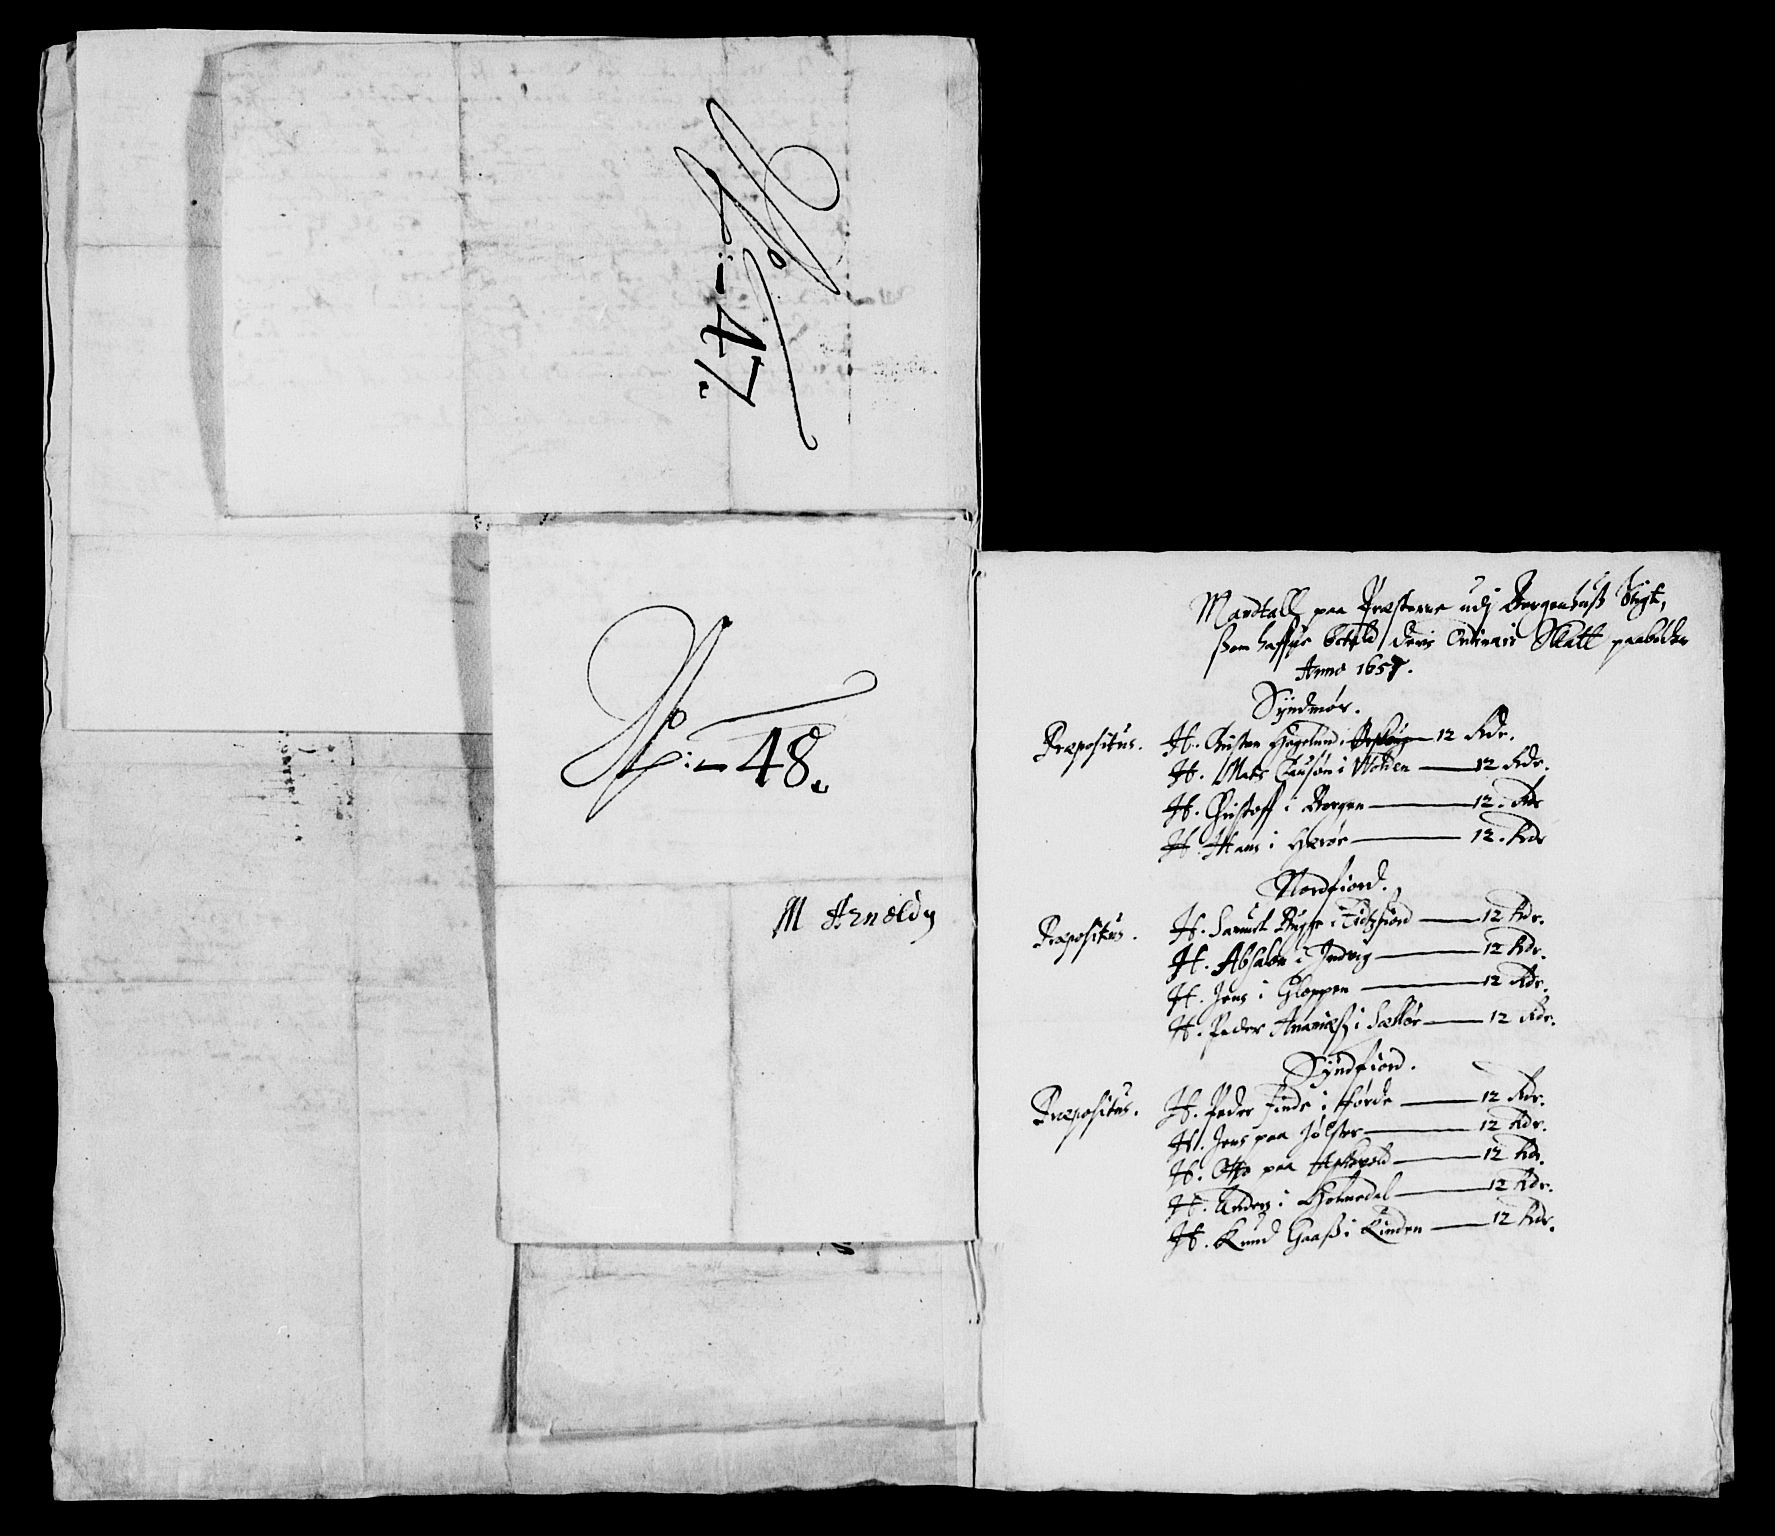 No:- 47.
No:- 48.
M Arnoldj
Mandtall paa Præsterne udj Bergenhuß Stigt,
ßom haffue betald deris Ordinari Skatt paabuden
Anno 1657.
Syndmør.
Præpositus. H. Christen Hagelund i 12 Rdr.
H. Mads Clausøn i Wolden 12 Rdr.
H. Christoff i Borgen 12. Rdr
H. Hans i Herøe 12. Rdr
Nordfiord.
Præpositus. H. Samuel Bugge i Eidtzfiord 12 Rdr.
H. Absalon i Indvig 12 Rdr.
H. Jens i Gloppen 12 Rdr.
H. Peder i Selløe 12 Rdr.
Syndfiord.
Præpositus. H. Peder Finde i Førde 12 Rdr.
H. Jens paa Jølster 12 Rdr.
H. Otto paa Askevold 12 Rdr.
H. Anders i Holmedal 12 Rdr.
H. Knud Gaaß i Kinden 12 Rdr.